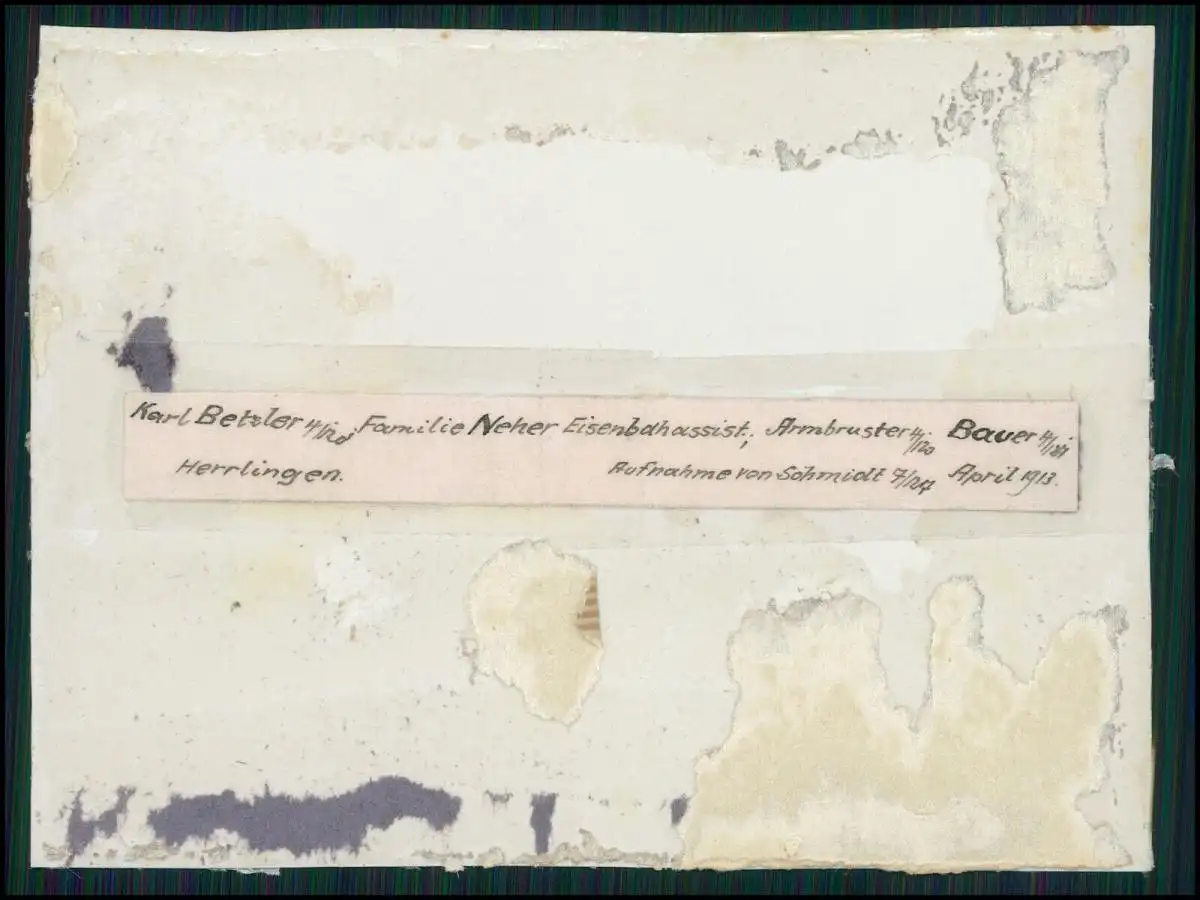 Karl Betzler 4/120, Familie Neher Eisenbahassist., Armbruster 4/120 Bauer 4/121
Herrlingen. Aufnahme von Schmidt 7/124 April 1913.